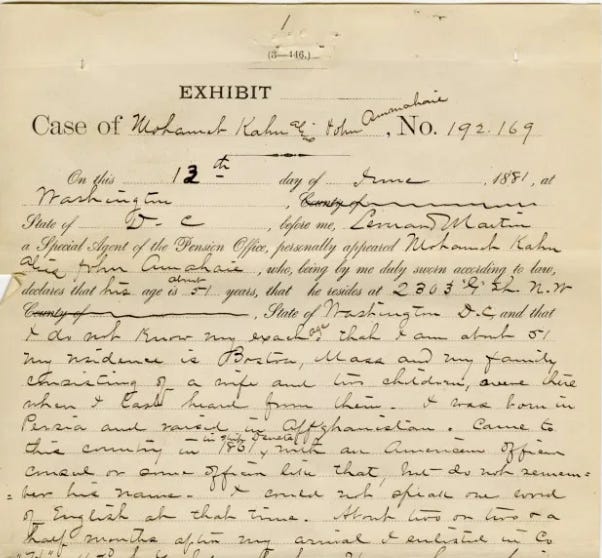 1
(3—446.)
EXHIBIT
Case of Mohamet Kahn als John Ammahaie, No. 192.169
On this 13th day of June, 1881, at
Washington, County of
State of D-C, before me, Leonard Martin
a Special Agent of the Pension Office, personally appeared Mohamet Kahn
alias John Ammahaie, who, being by me duly sworn according to law,
declares that his age is about 51 years, that he resides at 2303 G St. N.W
County of, State of Washington D.C, and that
I do not know my exact age that I am about 51
my residence is Boston, Mass and my family
consisting of a wife and two children, were there
when I last heard from them. I was born in
Persia and raised in Affghanistan. Came to
this country in 1861, with an American officer
consul or some officer like that, but do not remem-
-ber his name. I could not speak one word
of English at that time. About two or two & a
half months after my arrival I enlisted in Co